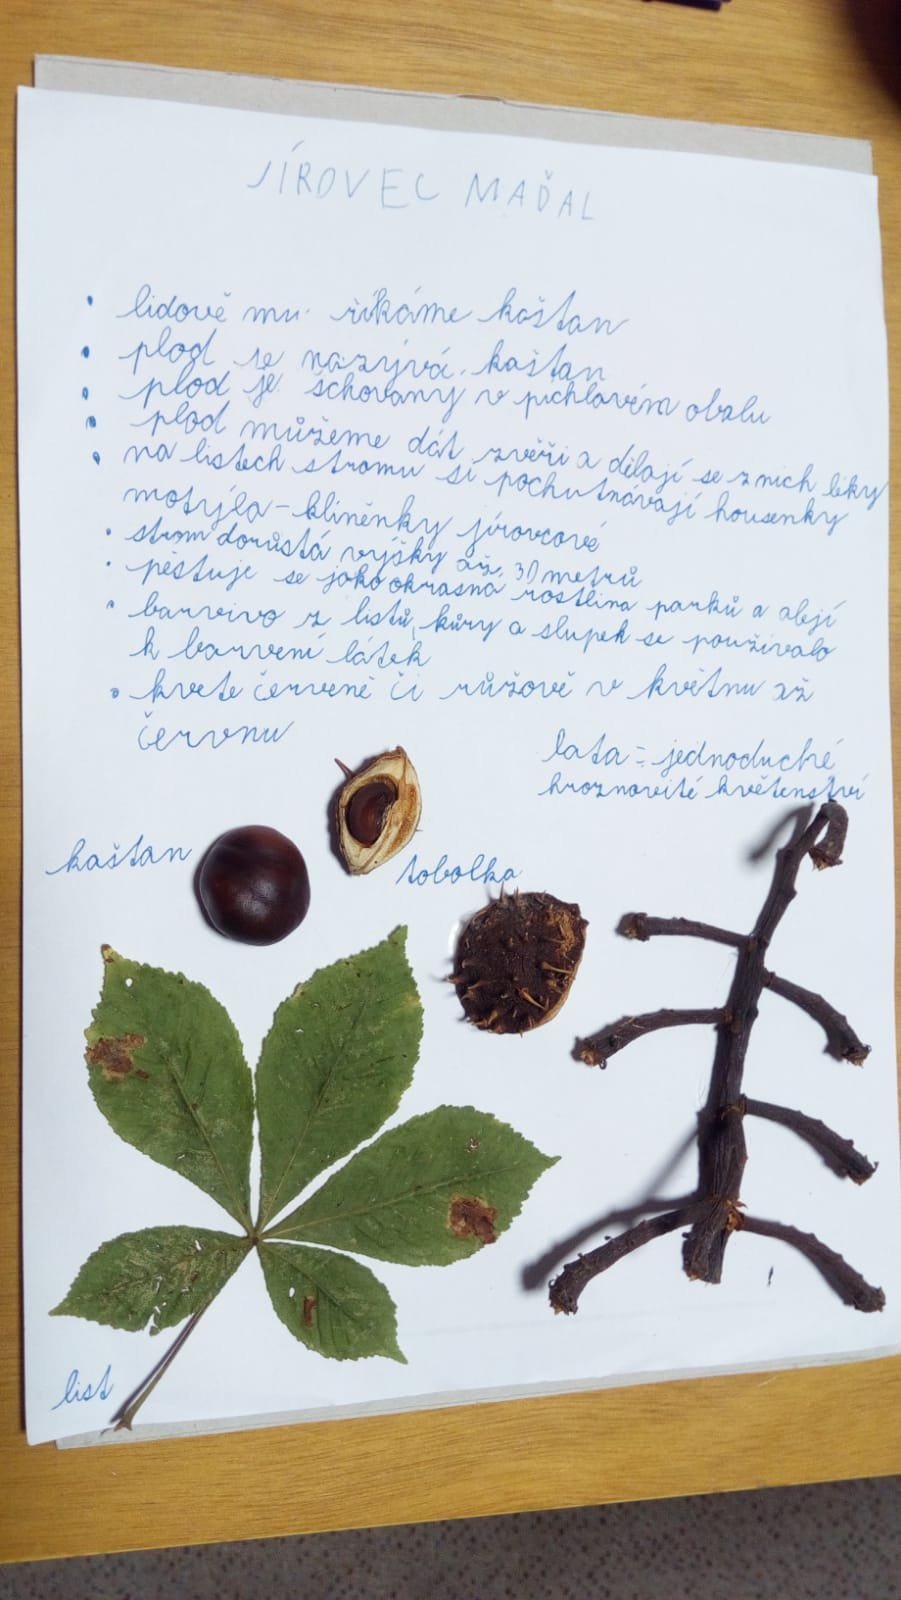 JÍROVEC MAĎAL
• lidově mu říkáme kaštan
• plod se nazývá kaštan
• plod je schovaný v pichlavém obalu
• plod můžeme dát zvěři a dělají se z nich léky
• na listech stromu si pochutnávají housenky
motýla - klíněnky jírovcové
• strom dorůstá výšky až 30 metrů
• pěstuje se jako okrasná rostlina parků a alejí
• barvivo z listů, kůry a slupek se používalo
k barvení látek
• kvete červeně či růžově v květnu až
červnu
lata = jednoduché
hroznovité květenství
kaštan
tobolka
list